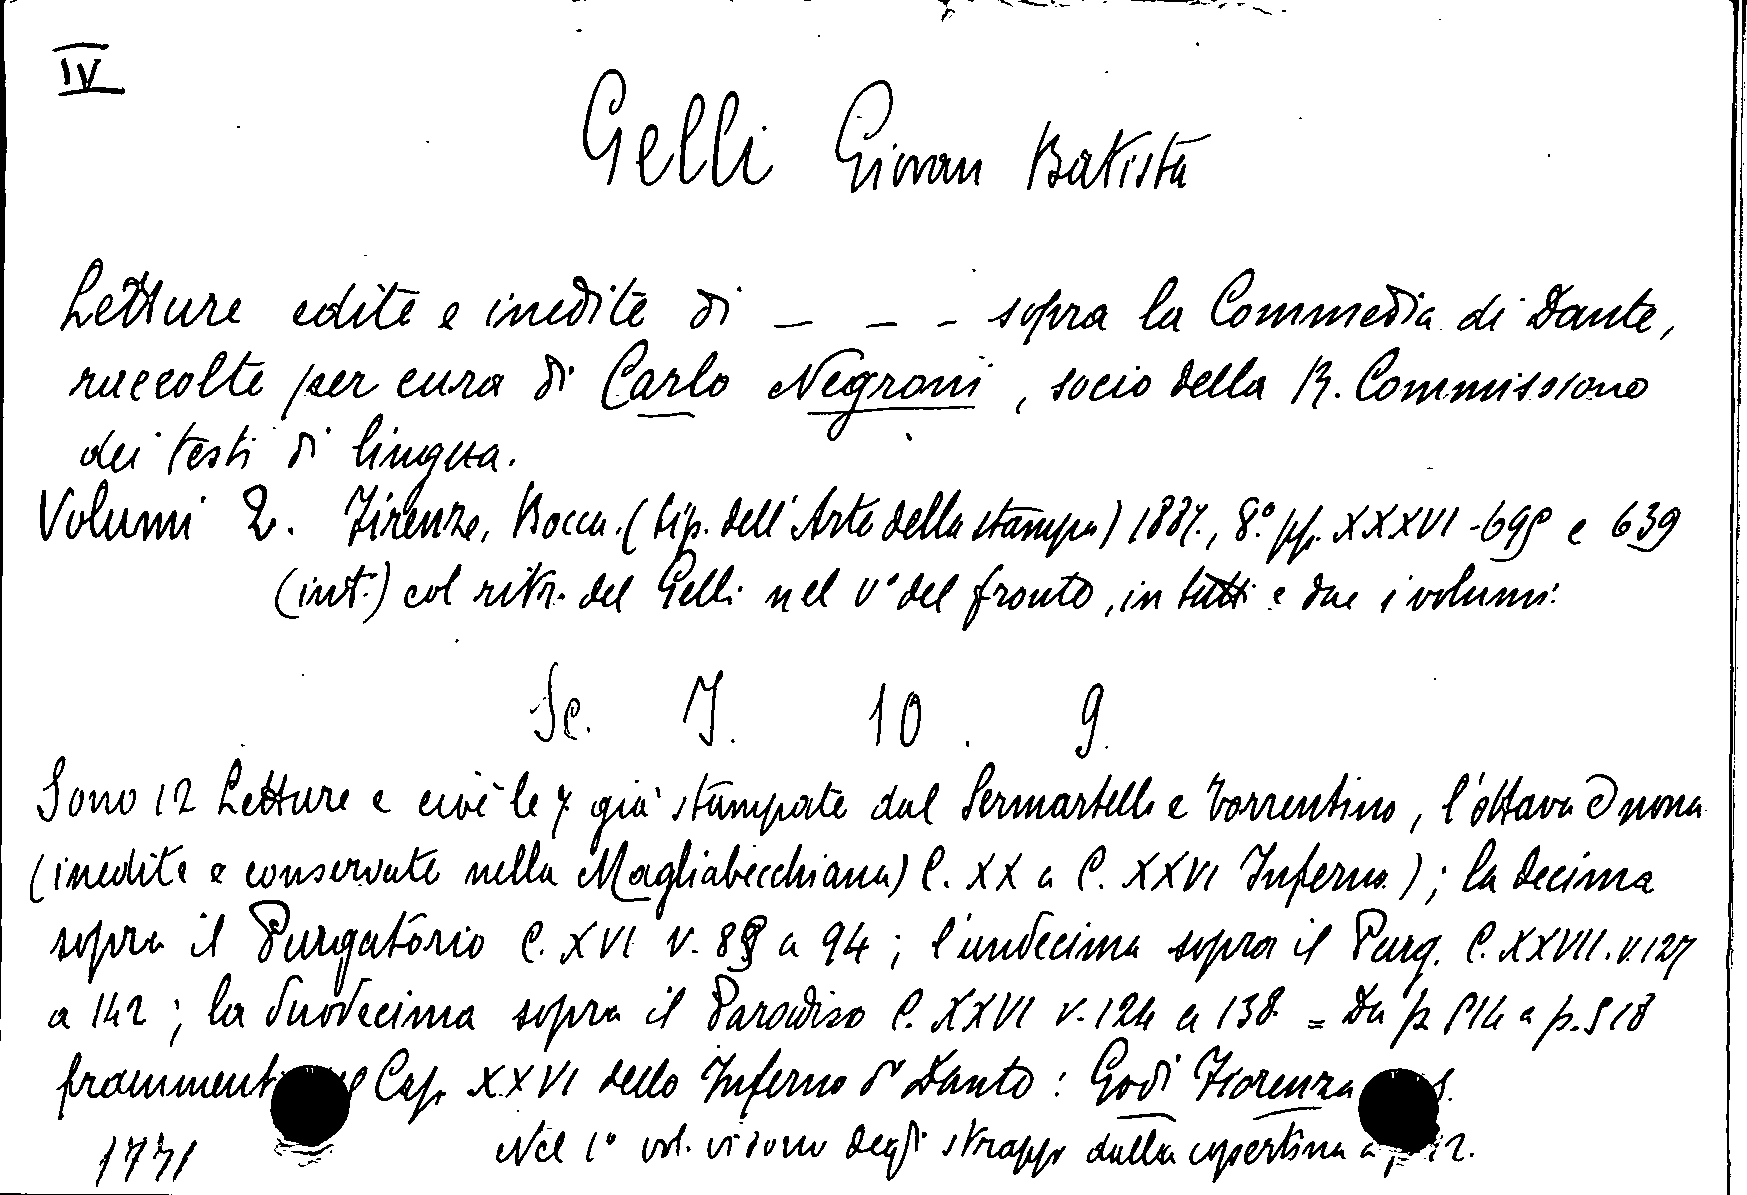 IV
Gelli Giovan Batista
Letture edite e inedite di _ _ _ sopra la Commedia di Dante,
raccolte per cura di Carlo Negroni, socio della R. Commissione
dei testi di lingua.
Volumi 2. Firenze, Bocca. (tip. dell'Arte della stampa) 1887, 8.° pp. XXXVI - 699 e 639
(int.) col ritr. del Gelli nel v° del fronte, in tutti e due i volumi.
Sc. I. 10. 9.
Sono 12 Letture e cioè le 7 già stampate dal Sermartelli e Torrentino, l'ottava e nona
(inedite e conservate nella Magliabecchiana) C. XX a C. XXVI Inferno); la decima
sopra il Purgatorio C. XVI v. a 94; l'undecima sopra il Purg. C. XXVII. v. 127
a 142; la duodecima sopra il Paradiso C. XXVI v. 124 a 138 = Da p. 514 a p. 518
Cap. XXVI dello Inferno di Dante: Godi Fiorenza
1771 Nel 1° vol. vi sono degli strappi dalla copertina a